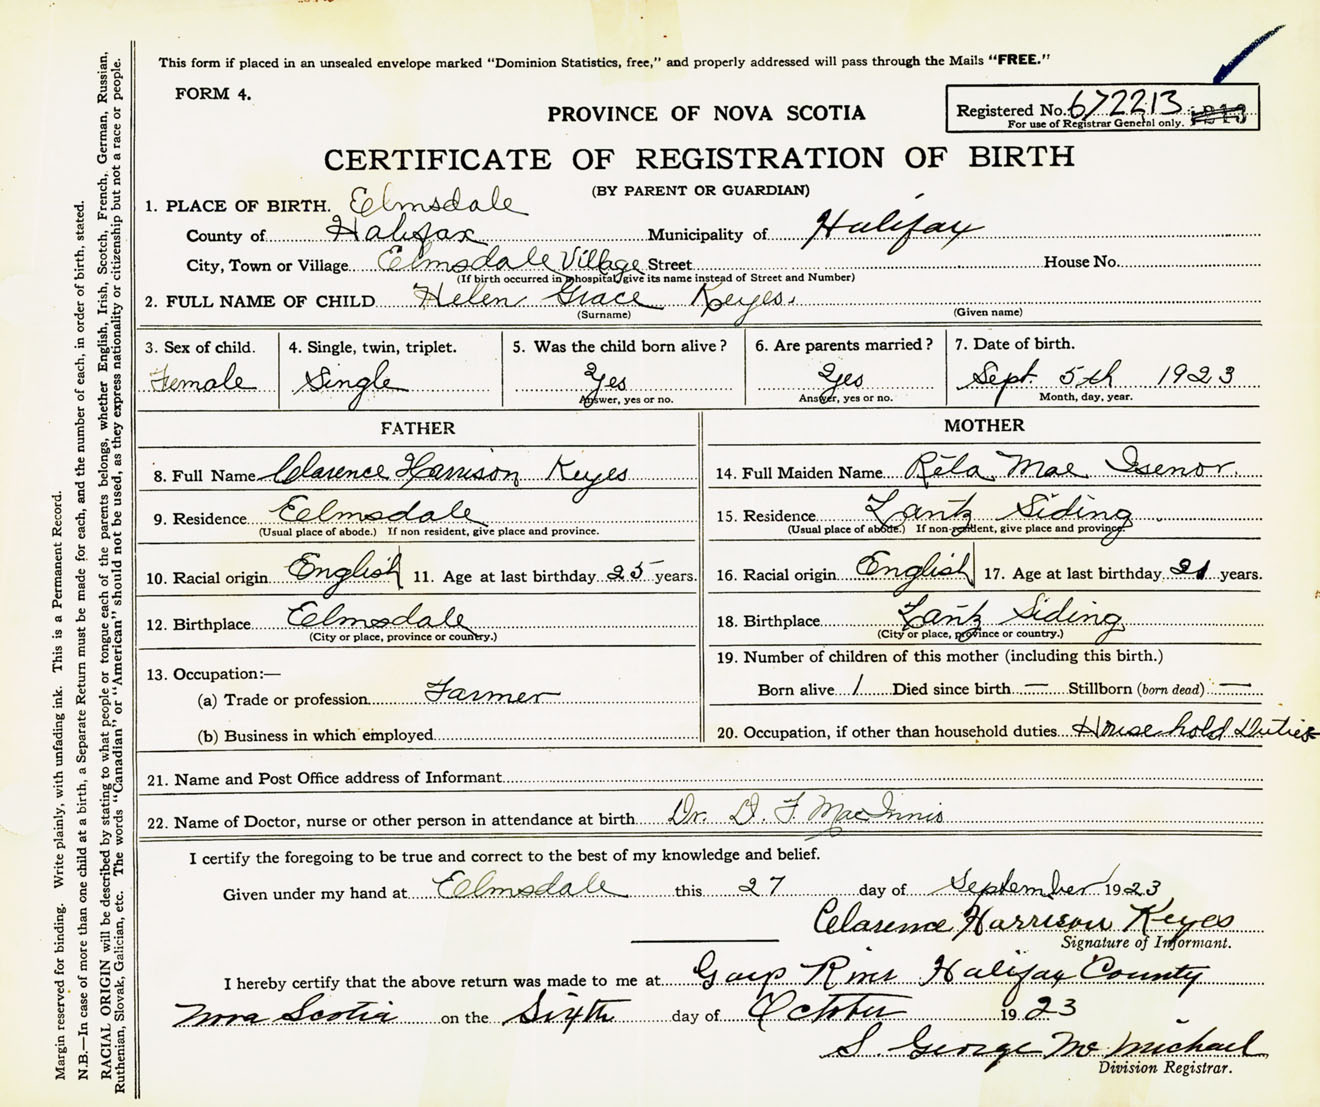 This form if placed in an unsealed envelope marked "Dominion Statistics, free," and properly addressed will pass through the Mails "FREE."
FORM 4.
Registered No. 672213
For use of Registrar General only.
PROVINCE OF NOVA SCOTIA
CERTIFICATE OF REGISTRATION OF BIRTH
(BY PARENT OR GUARDIAN)
1. PLACE OF BIRTH. Elmsdale
County of Halifax Municipality of Halifax
City, Town or Village Elmsdale Village Street House No.
(If birth occurred in hospital, give its name instead of Street and Number)
2. FULL NAME OF CHILD Helen Grace Keyes.
(Surname) (Given name)
3. Sex of child. 4. Single, twin, triplet. 5. Was the child born alive? 6. Are parents married? 7. Date of birth.
Female Single Yes Yes Sept. 5th 1923
Answer, yes or no. Answer, yes or no. Month, day, year.
FATHER MOTHER
8. Full Name Clarence Harrison Keyes 14. Full Maiden Name Rêla Mae Isenor.
9. Residence Elmsdale 15. Residence Lantz Siding
(Usual place of abode.) If non resident, give place and province. (Usual place of abode.) If non-resident, give place and province.
10. Racial origin English 11. Age at last birthday 25 years. 16. Racial origin English 17. Age at last birthday 21 years.
12. Birthplace Elmsdale 18. Birthplace Lantz Siding
(City or place, province or country.) (City or place, province or country.)
13. Occupation:— 19. Number of children of this mother (including this birth.)
(a) Trade or profession Farmer Born alive 1 Died since birth — Stillborn (born dead) —
(b) Business in which employed 20. Occupation, if other than household duties Household Duties
21. Name and Post Office address of Informant
22. Name of Doctor, nurse or other person in attendance at birth Dr. D. F. MacInnis
I certify the foregoing to be true and correct to the best of my knowledge and belief.
Given under my hand at Elmsdale this 27 day of September 1923
Clarence Harrison Keyes
Signature of Informant.
I hereby certify that the above return was made to me at Gays River Halifax County
Nova Scotia on the Sixth day of October 1923
S. George McMichael
Division Registrar.
Margin reserved for binding. Write plainly, with unfading ink. This is a Permanent Record.
N.B.—In case of more than one child at a birth, a Separate Return must be made for each, and the number of each, in order of birth, stated.
RACIAL ORIGIN will be described by stating to what people or tongue each of the parents belongs, whether English, Irish, Scotch, French, German, Russian,
Ruthenian, Slovak, Galician, etc. The words "Canadian" or "American" should not be used, as they express nationality or citizenship but not a race or people.